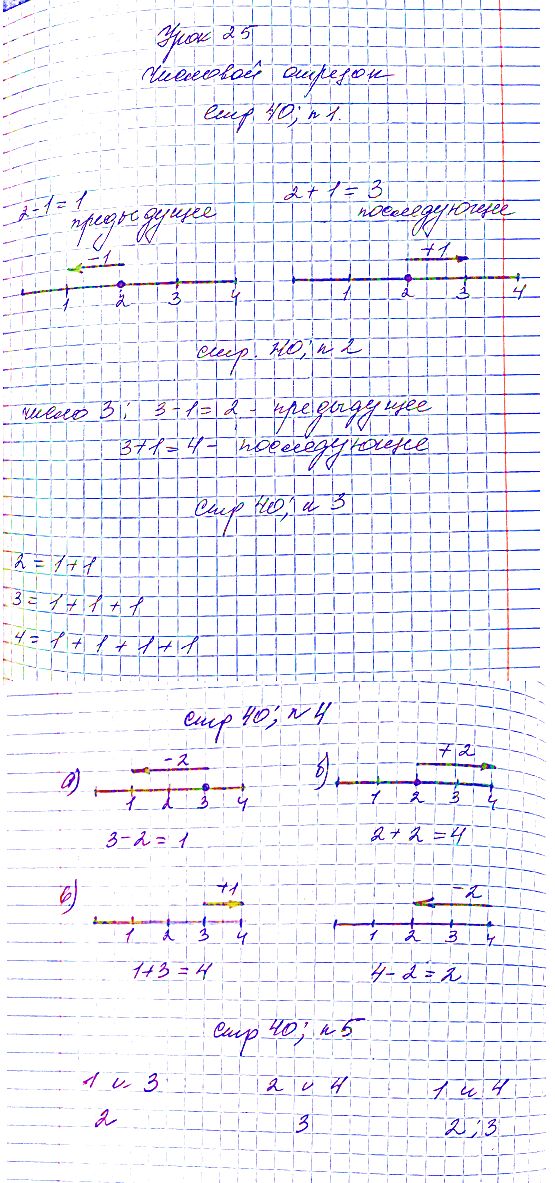 Урок 25
Числовой отрезок
стр 40; n 1.
2-1=1 2+1=3
предыдущее последующее
-1 +1
1 2 3 4 1 2 3 4
стр. 40; n 2
число 3; 3-1=2 - предыдущее
3+1=4 - последующее
стр 40; n 3
2 = 1+1
3 = 1+1+1
4 = 1+1+1+1
стр 40; n 4
-2 +2
а) б)
1 2 3 4 1 2 3 4
3-2=1 2+2=4
+1 -2
в)
1 2 3 4 1 2 3 4
1+3=4 4-2=2
стр 40; n 5
1 и 3 2 и 4 1 и 4
2 3 2; 3